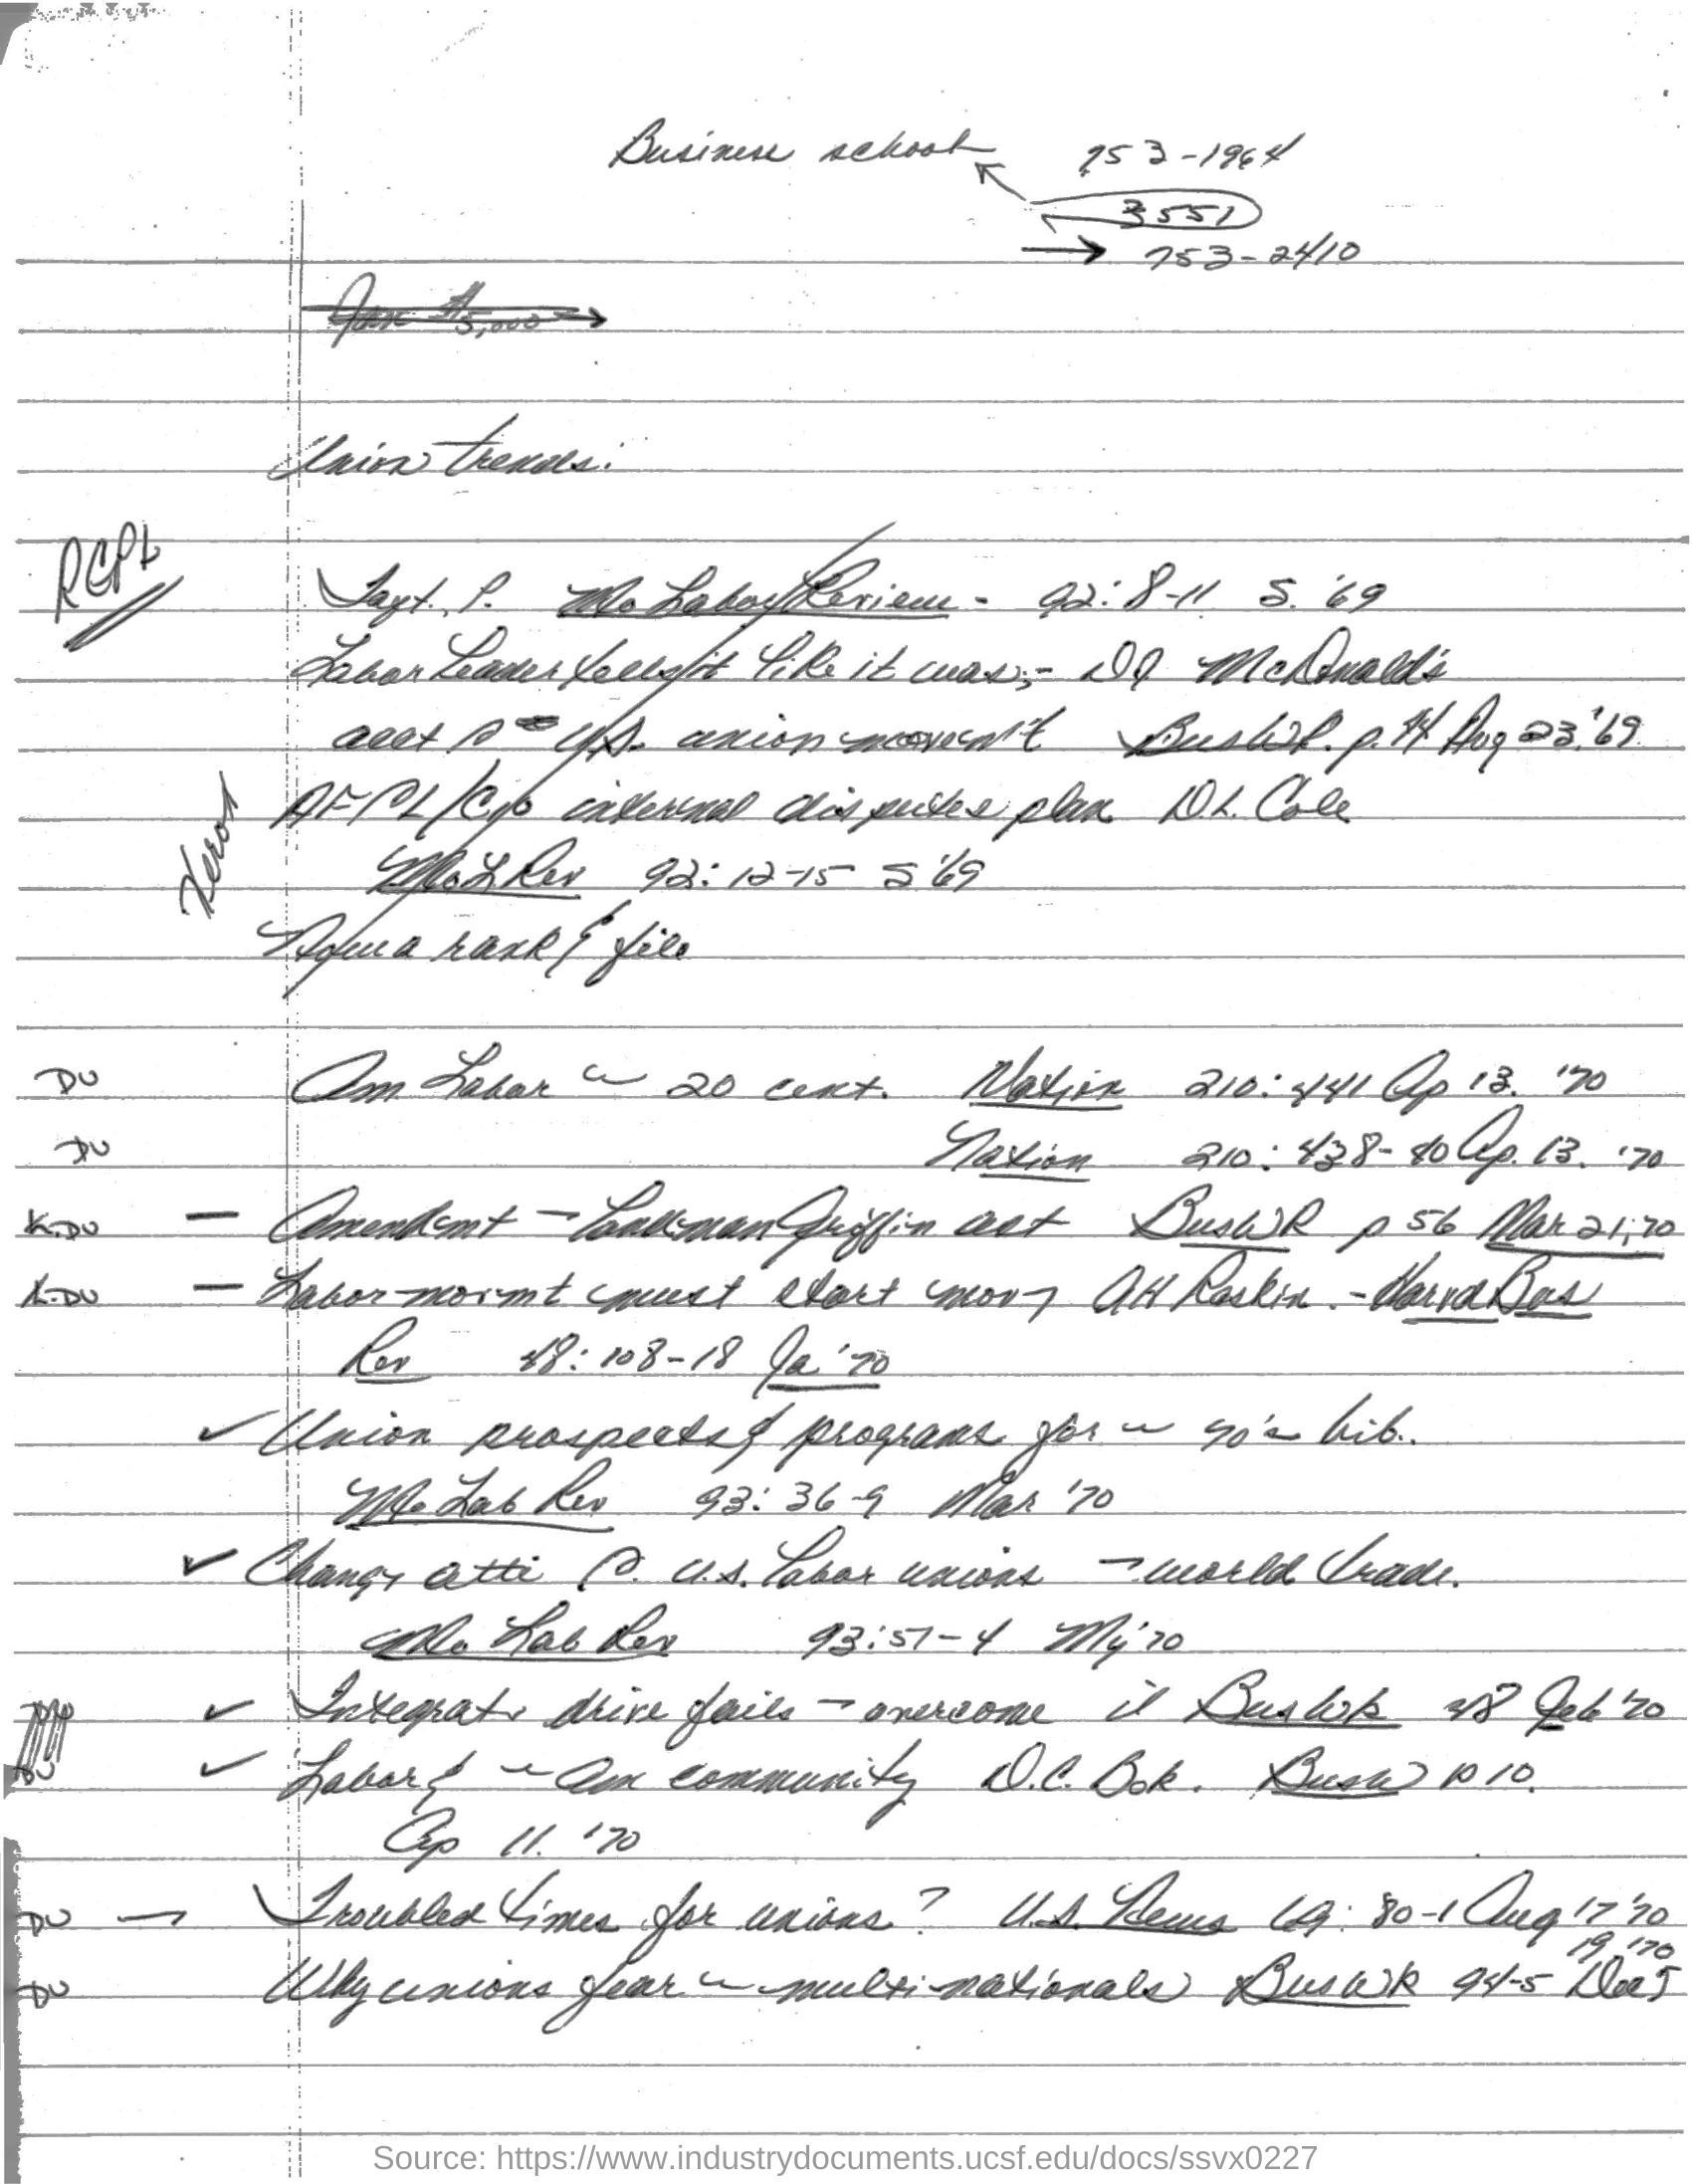 Business school 753-1964
3551
753-2410
5,000
Union trends:
RCPL
Taft, P. Mo Labor Review - 92: 8-11 S. '69
Labor Leader tells it like it was;- DJ McDonald's
acct U.S. union movem't BusWk. p. 44 Aug 23, '69
Xerox
AFCL/Cio internal disputes plan D.L. Cole
Mo L Rev 92: 12-15 S '69
rank & file
DU Am Labor 20 cent. Nation 210: 441 Ap 13. '70
DU Nation 210: 438-40 Ap. 13. '70
K.DU — Amendmt Landrum Griffin act BusWk p 56 Mar 21, 70
K.DU — Labor movmt must start mov AH Raskin. - Harvd Bus
Rev 48: 108-18 Ja '70
✓ Union prospects & programs for 70's bib.
Mo Lab Rev 93: 36-9 Mar '70
✓ Chang atti U.S. Labor unions world trade.
Mo. Lab Rev 93:51-4 My '70
✓ Integrat drive fails overcome it BusWk 48 Feb '70
DU ✓ Labor & Am community D.C. Bok. BusW p 10.
Ap 11. '70
DU — Troubled times for unions? U.S. News 69: 80-1 Aug 17 '70
19, '70
DU Why unions fear multi-nationals BusWk 94-5 Dec
Source: https://www.industrydocuments.ucsf.edu/docs/ssvx0227